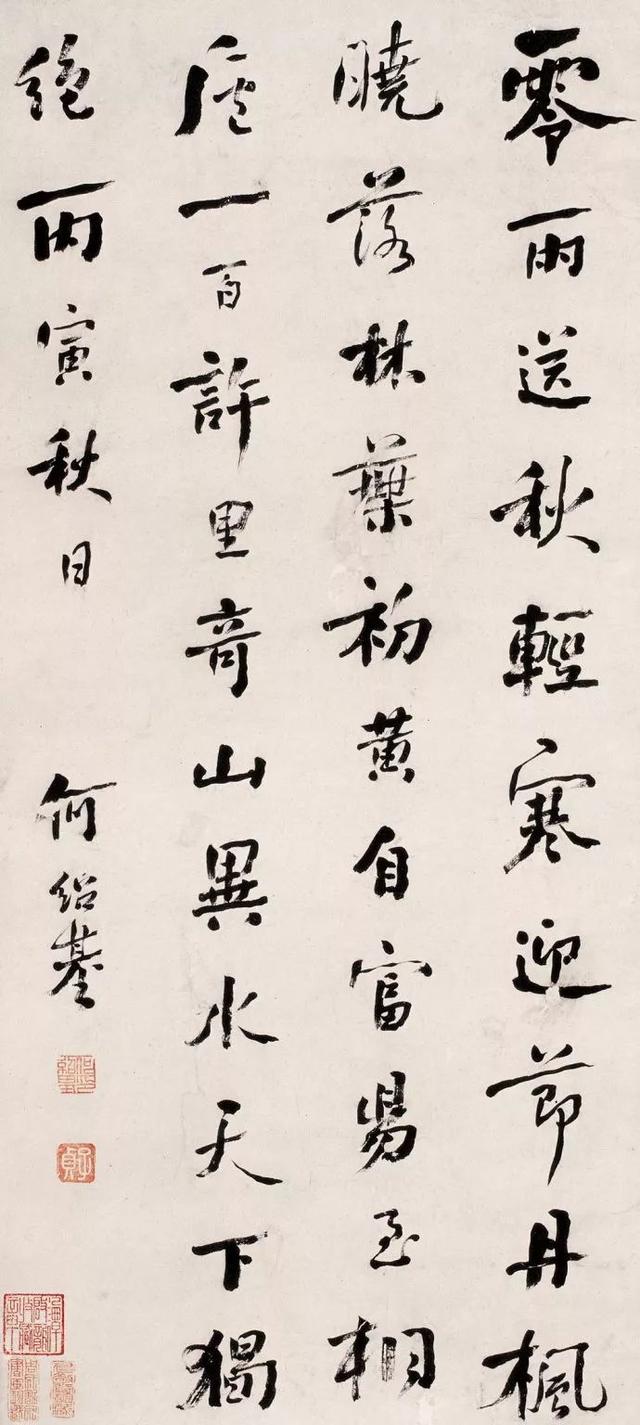 零雨送秋輕寒迎節丹楓
曉落林葉初黃自富昜至桐
廬一百許里奇山異水天下獨
絕丙寅秋日 何紹基
何紹基印
子貞